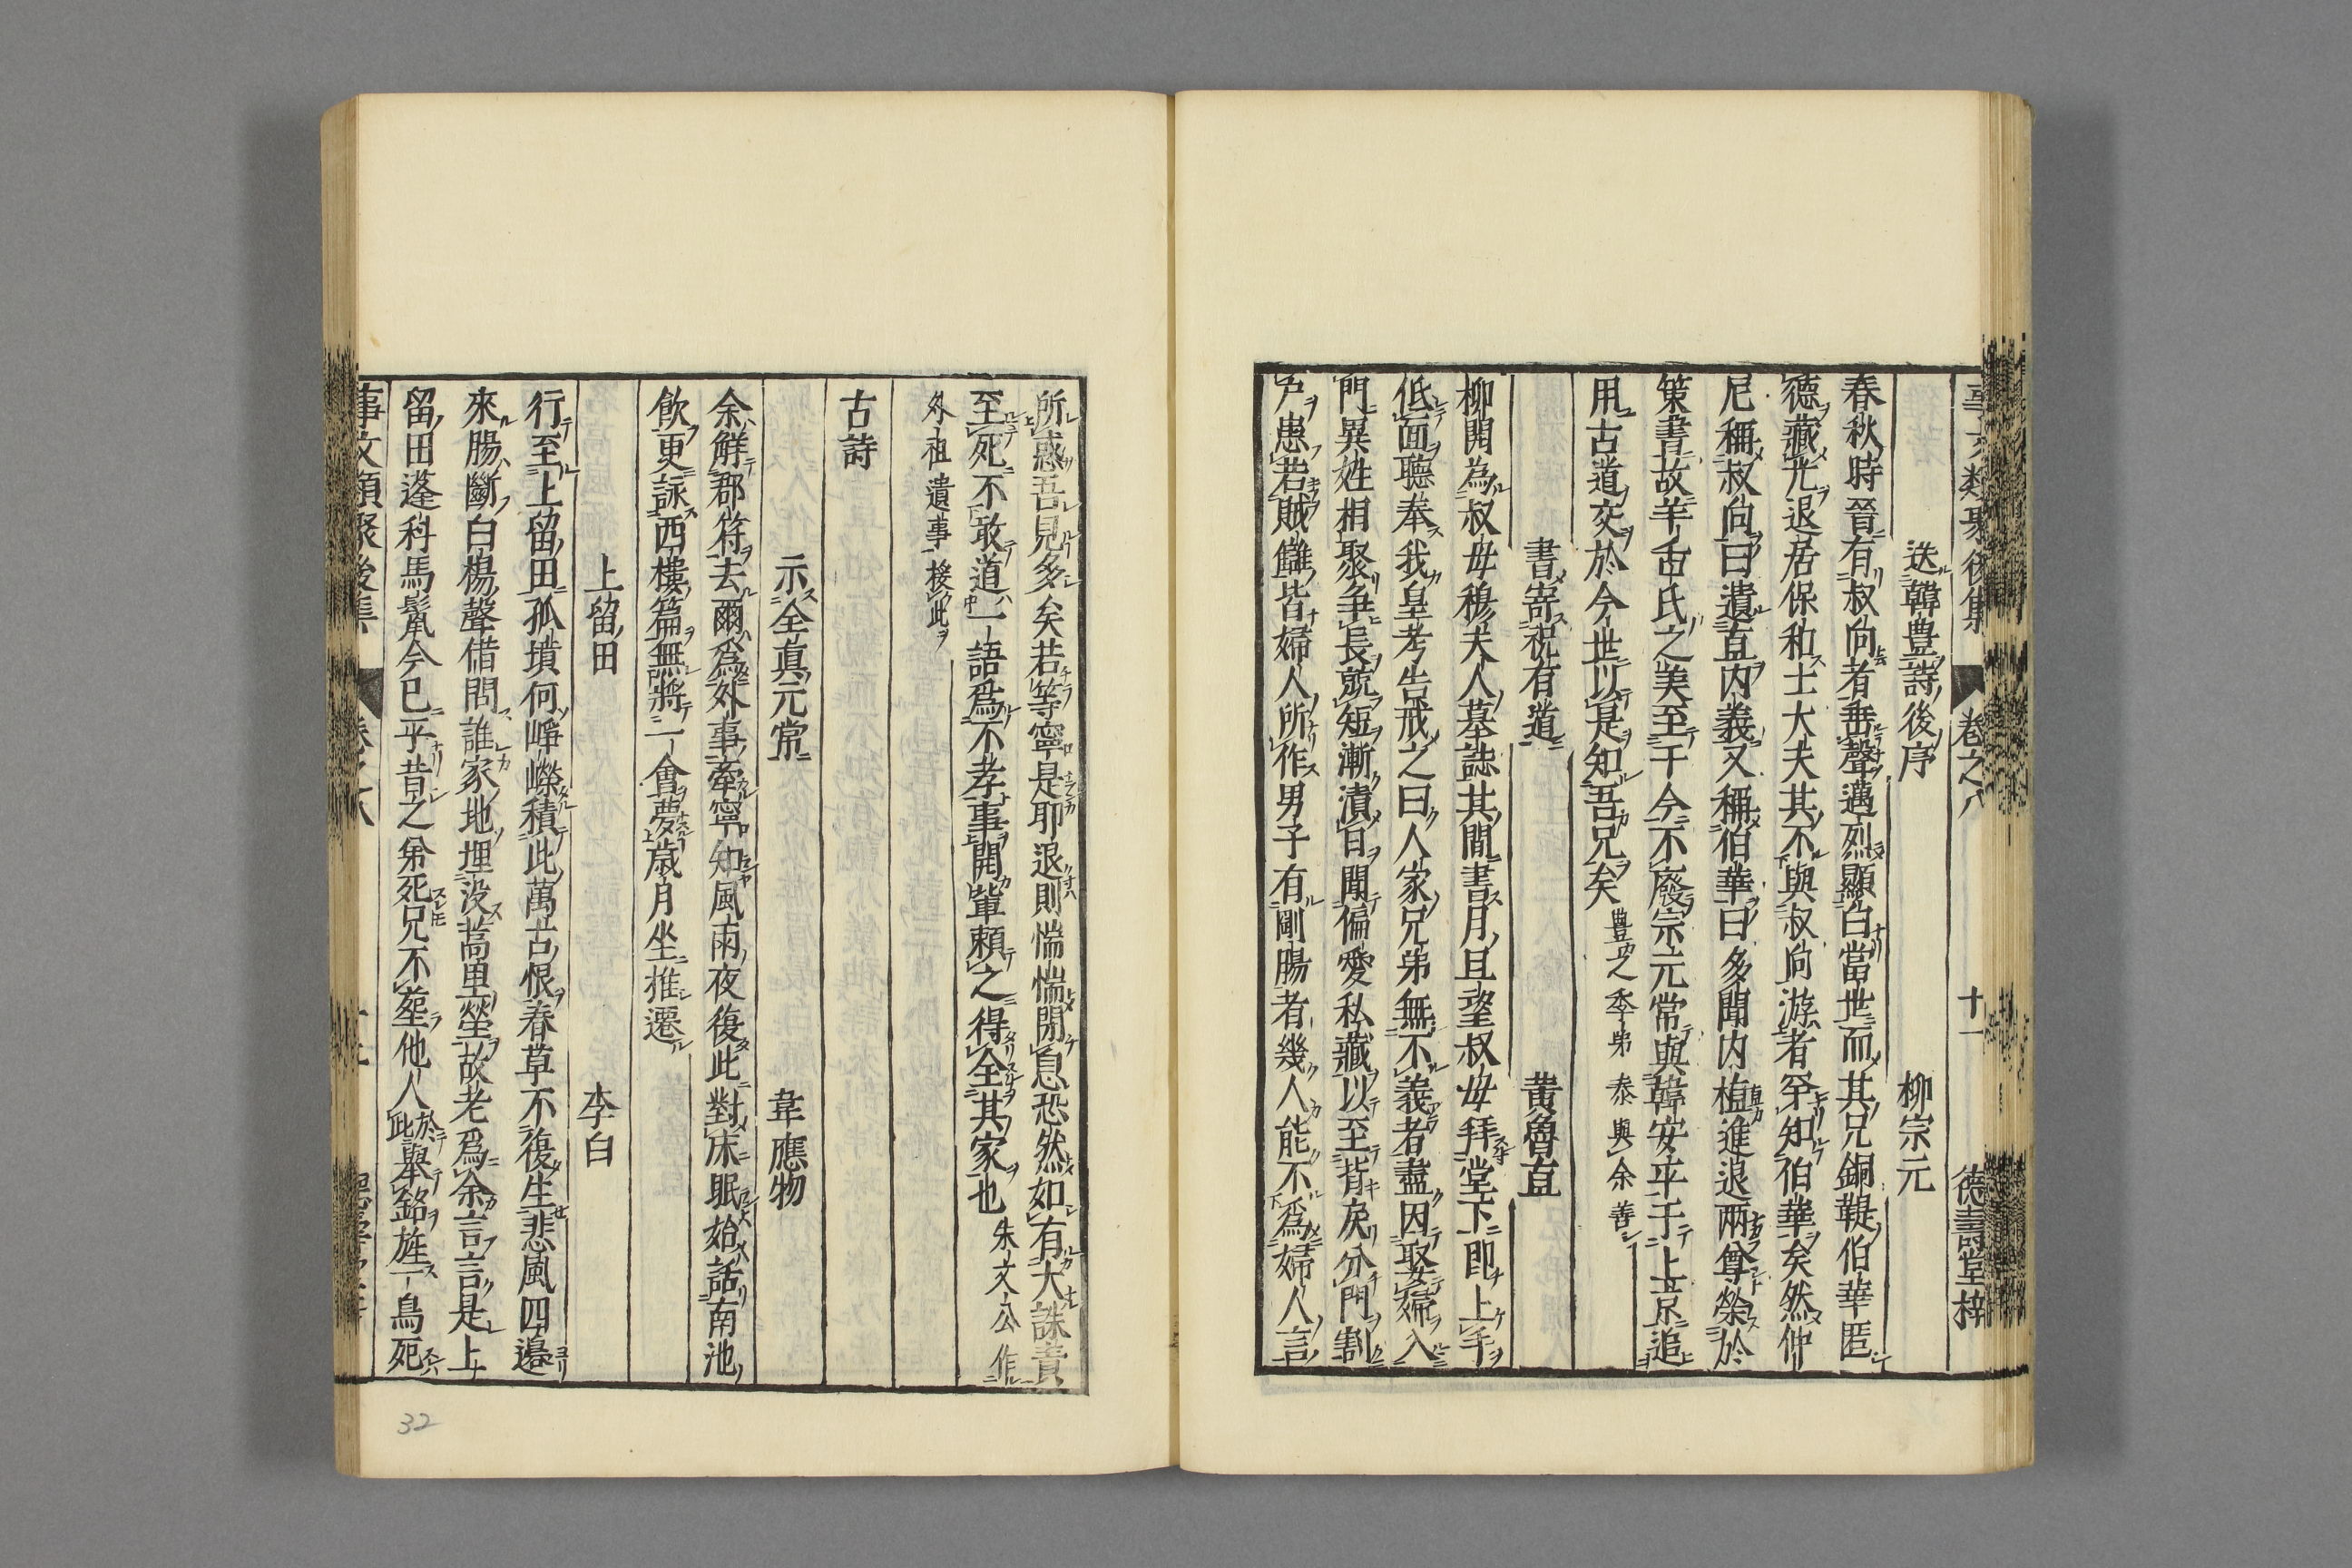 事文類聚後集 卷之八 十一 德壽堂梓
送韓豊詩後序 柳宗元
春秋時晉有叔向者垂聲邁烈顯白當世而其兄銅鞮伯華匿
德藏光退居保和士大夫其不與叔向游者罕知伯華矣然仲
尼稱叔向曰遺直內義又稱伯華曰多聞內植進退兩尊榮於
策書故羊舌氏之美至于今不廢宗元常與韓安平于上京追
用古道交於今世以是知吾兄矣 豊之季弟泰與余善
書寄祝有道 黃魯直
柳開為叔母穆夫人墓誌其間書月旦望叔母拜堂下即上手
低面聽奉我皇考告戒之曰人家兄弟無不義者盡因娶婦入
門異姓相聚争長競短漸漬日聞偏愛私藏以至背戾分門割
戶患若賊讎皆婦人所作男子有剛腸者幾人能不爲婦人言
所惑吾見多矣若等寧是耶退則惴惴閉息恐然如有大誅責
至死不敢道一語爲不孝事開輩賴之得全其家也 朱文公作
外祖遺事援此
古詩
示全真元常 韋應物
余觧郡符去爾爲外事牽寧知風雨夜復此對床眠始話南池
飲更詠西樓篇無將一會夢歲月坐推遷
上留田 李白
行至上留田孤墳何崢嶸積此萬古恨春草不復生悲風四邊
來腸斷白楊聲借問誰家地埋没蒿里塋故老爲余言言是上
留田蓬科馬鬣今已平昔之弟死兄不葬他人於此舉銘旌一鳥死
事文類聚後集